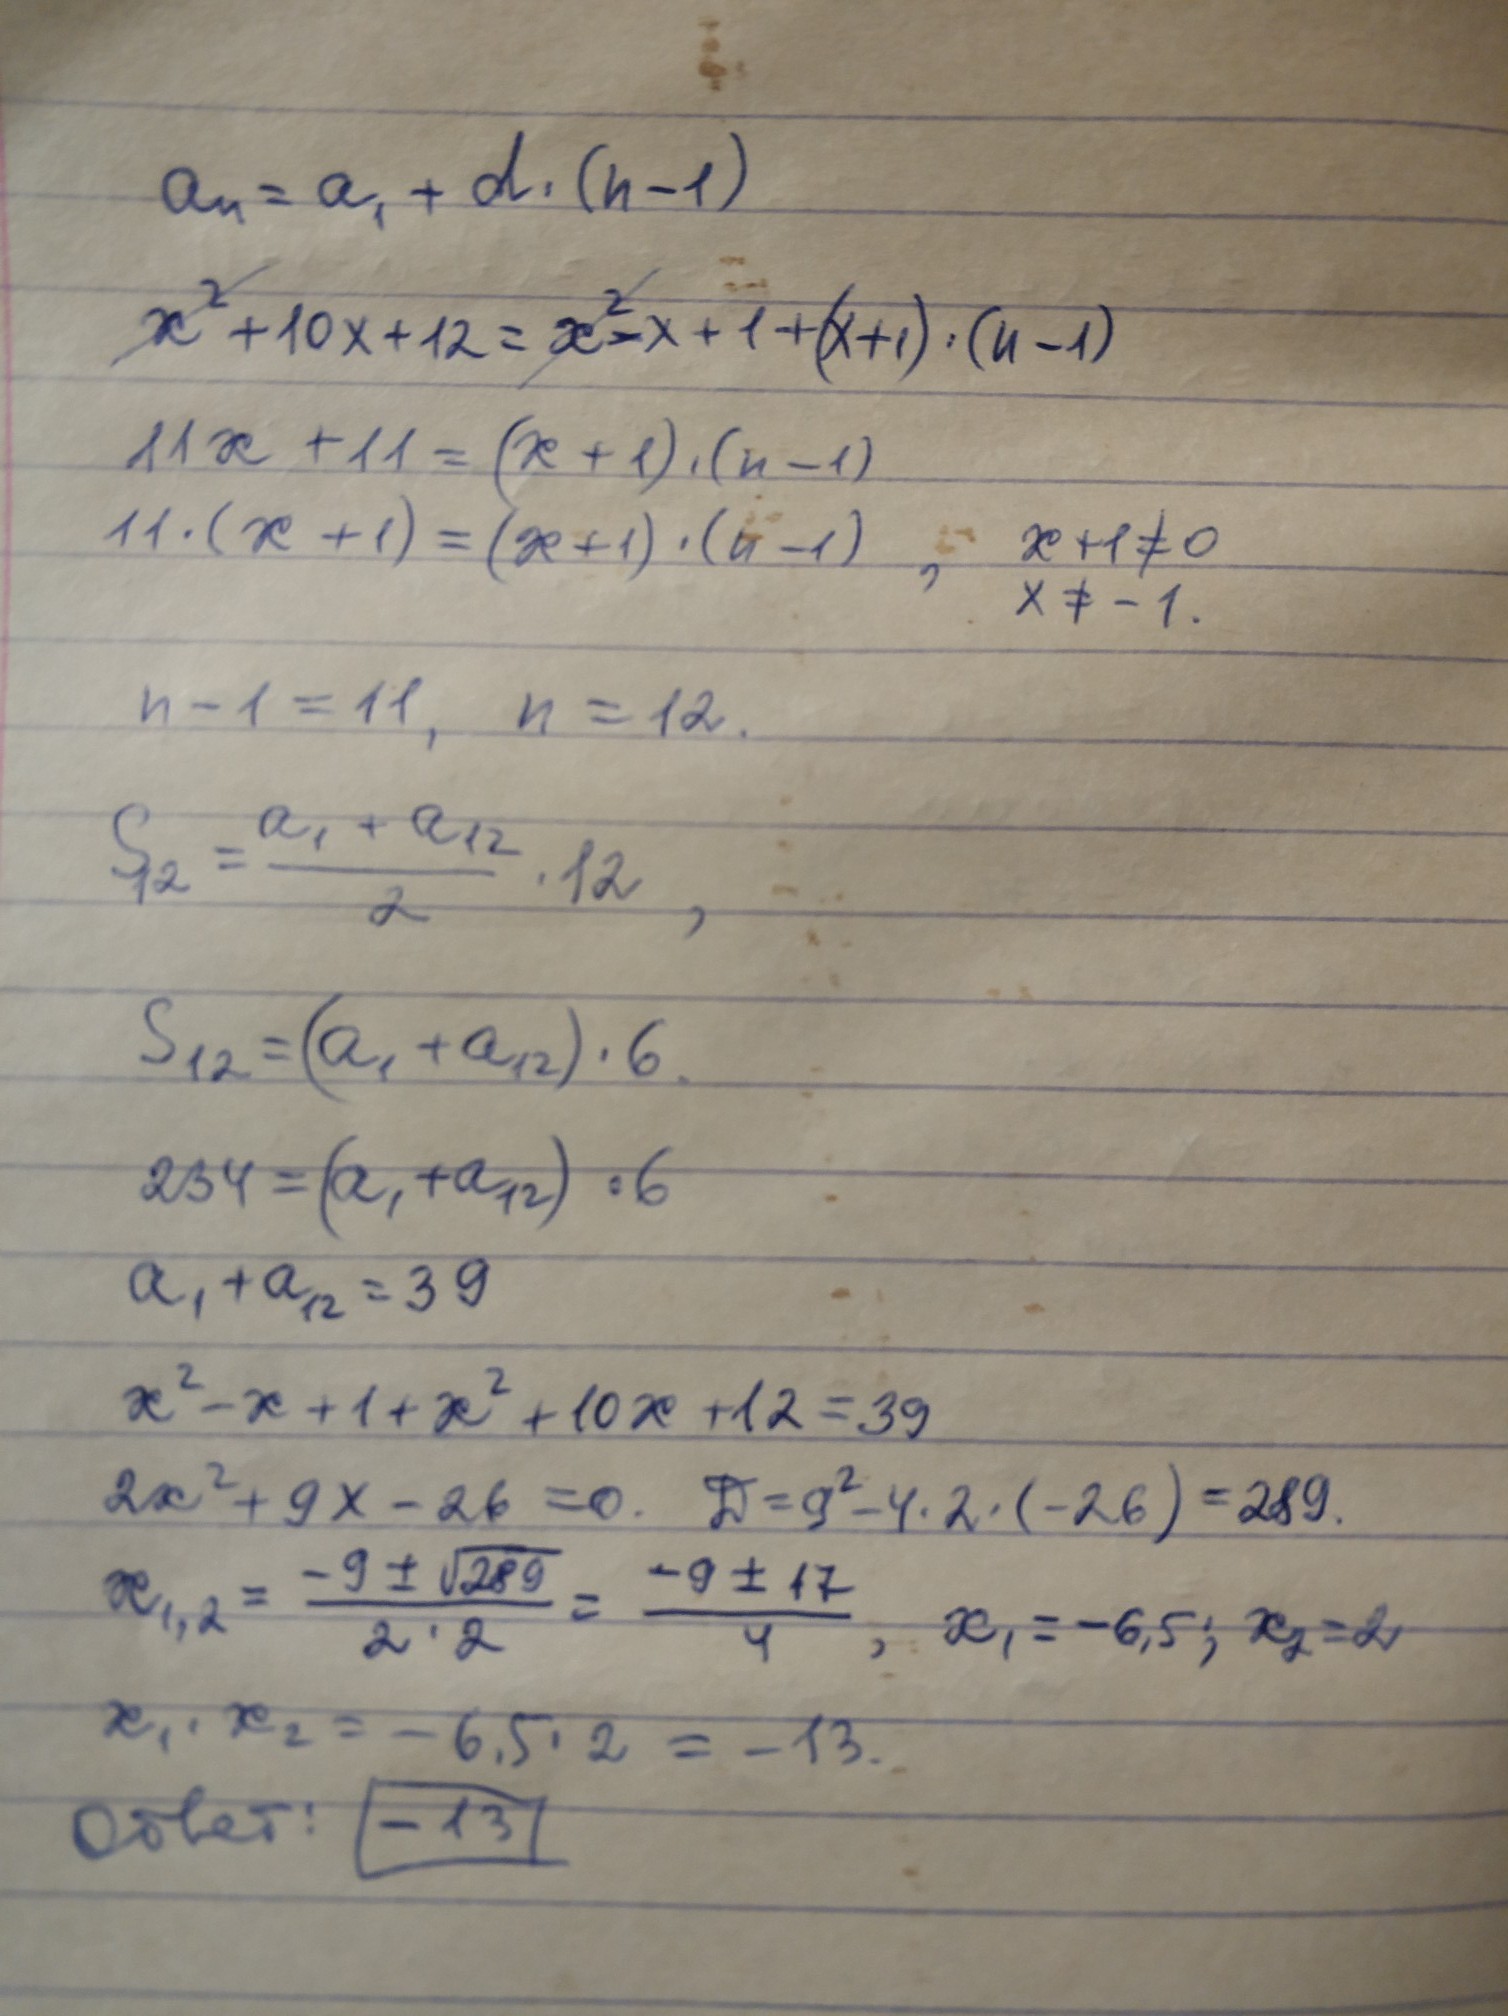 aₙ = a₁ + d · (n - 1)
x² + 10x + 12 = x² - x + 1 + (x+1) · (n - 1)
11x + 11 = (x + 1) · (n - 1)
11 · (x + 1) = (x+1) · (n - 1) , x + 1 ≠ 0
x ≠ - 1.
n - 1 = 11, n = 12.
S₁₂ = (a₁ + a₁₂)/2 · 12 ,
S₁₂ = (a₁ + a₁₂) · 6.
234 = (a₁ + a₁₂) · 6
a₁ + a₁₂ = 39
x² - x + 1 + x² + 10x + 12 = 39
2x² + 9x - 26 = 0. D = 9² - 4 · 2 · (-26) = 289.
x₁,₂ = (-9 ± √289)/(2 · 2) = (-9 ± 17)/4 , x₁ = -6,5 ; x₂ = 2
x₁ · x₂ = - 6,5 · 2 = - 13.
Ответ: - 13